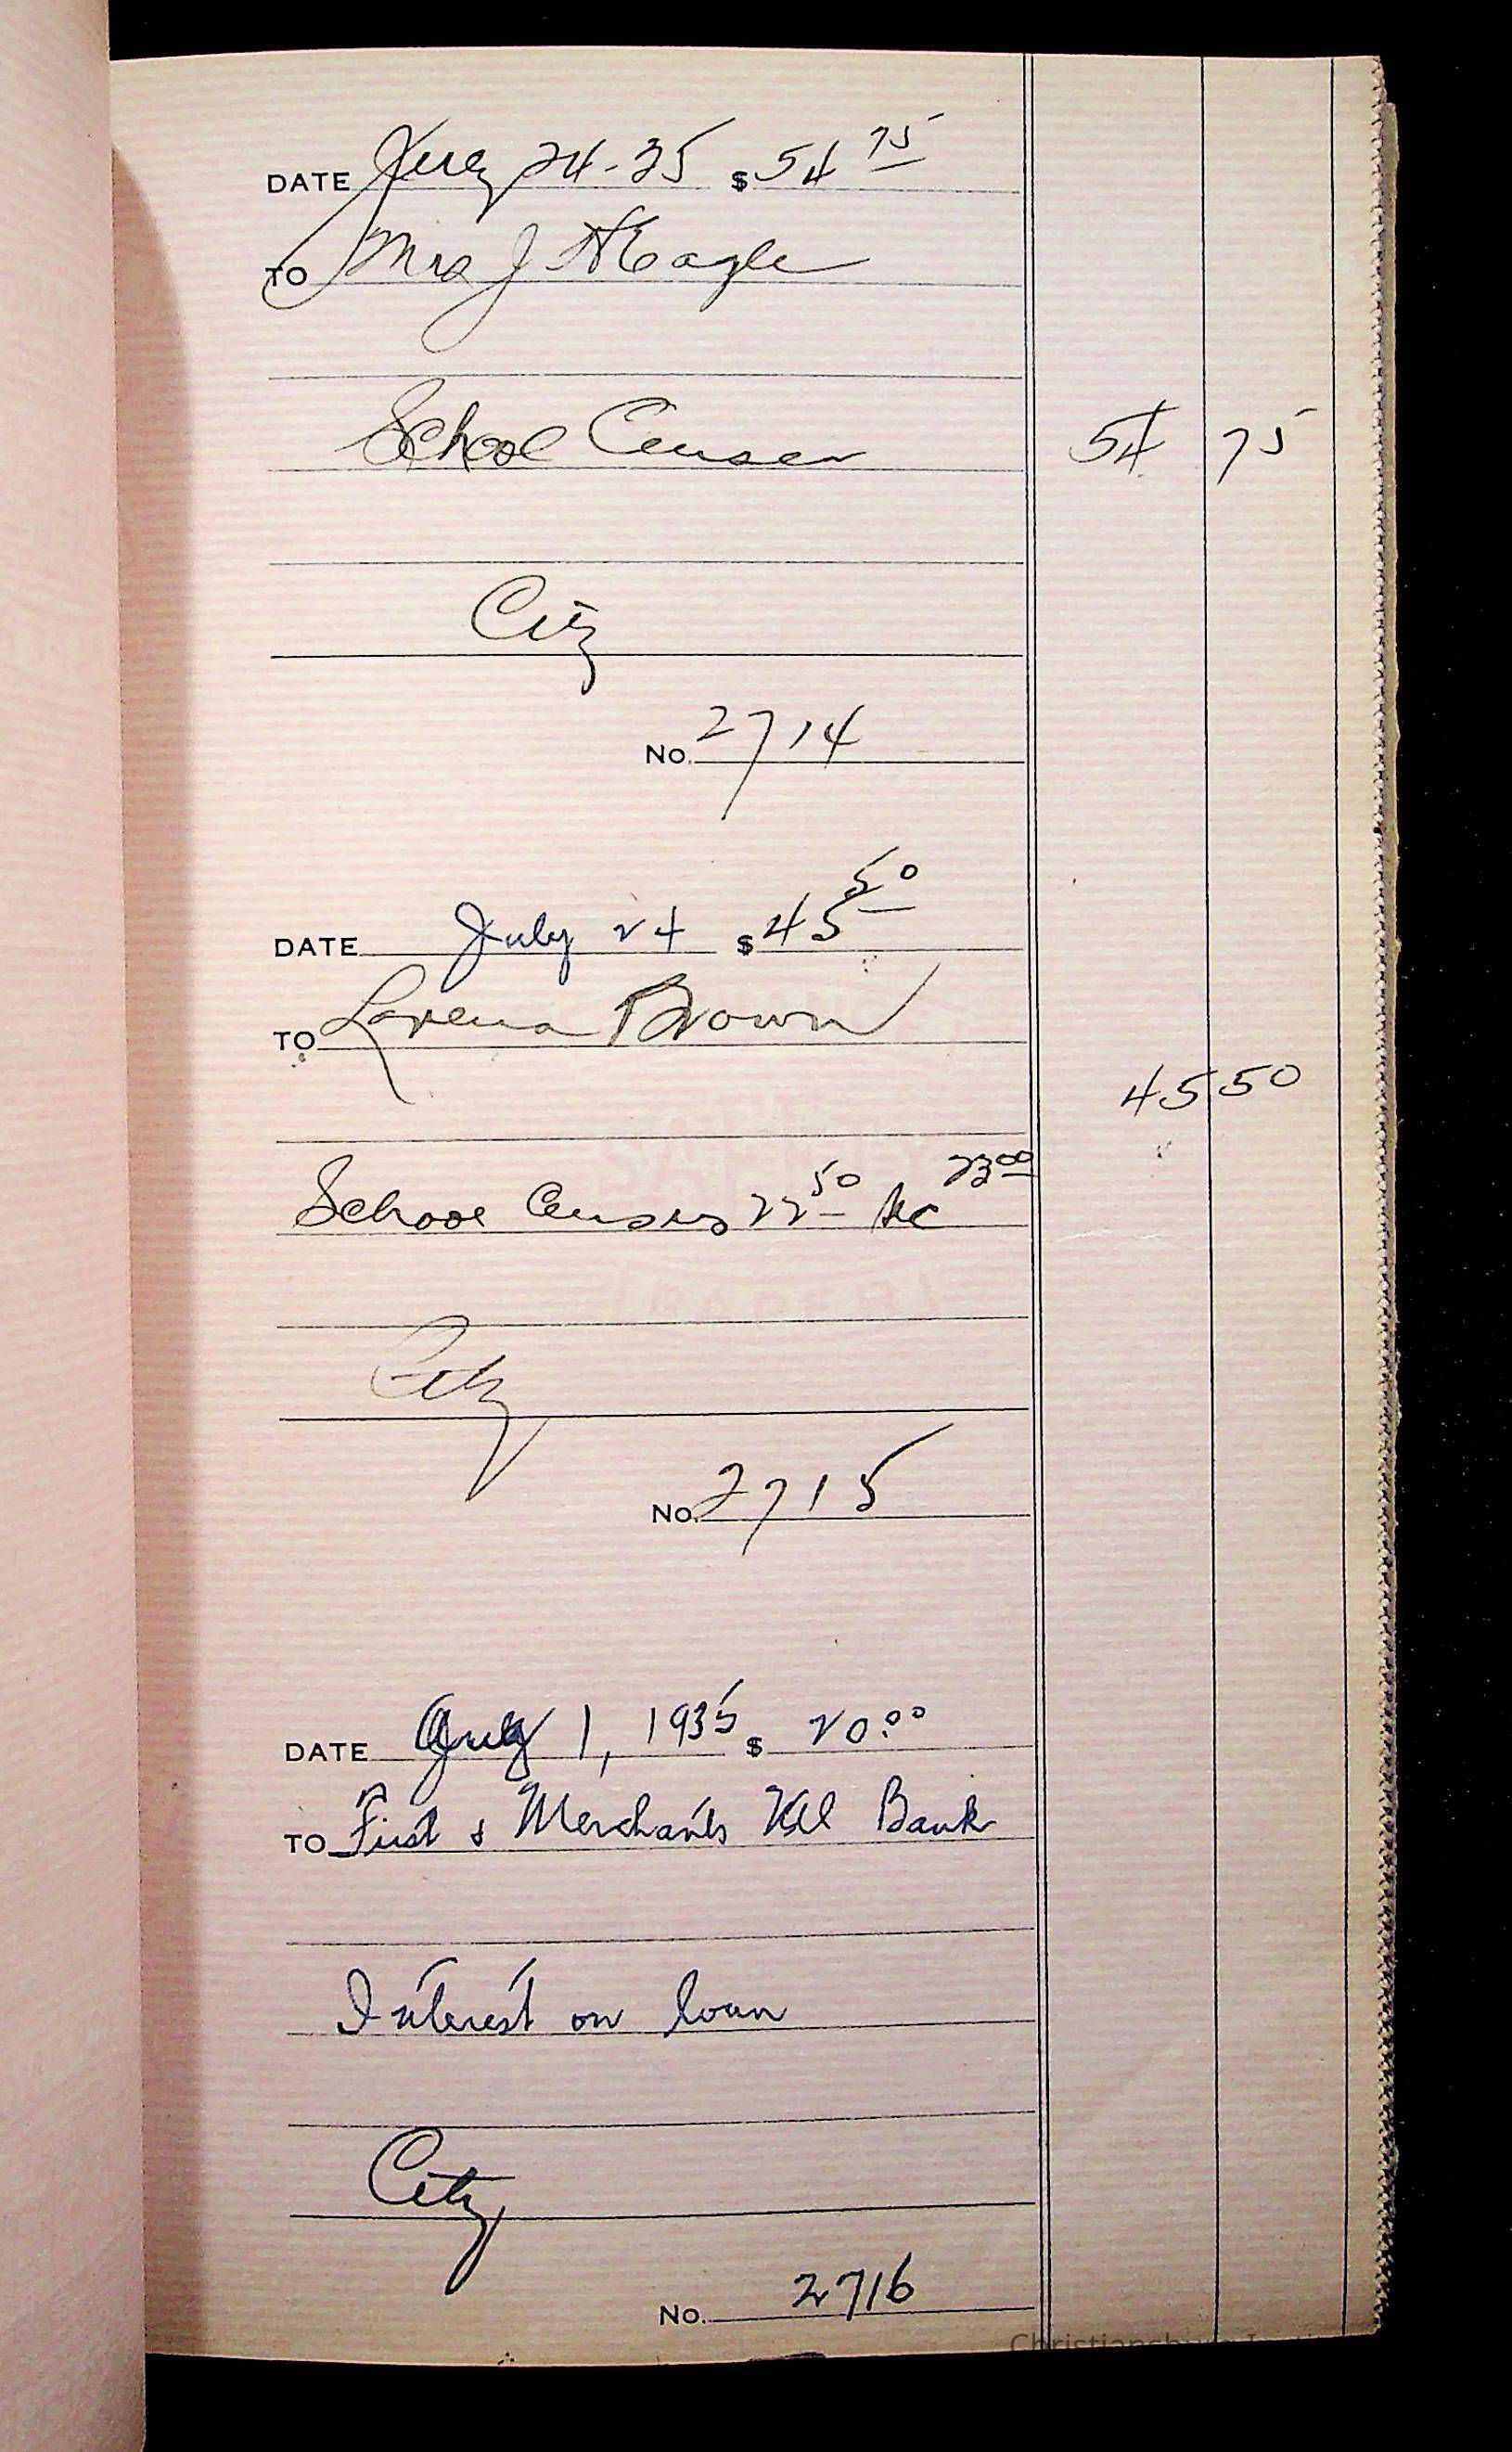 DATE July 24-35 $ 54 75
TO Mrs J H Eagle
School Census 54 75
City
No. 2714
DATE July 24 $ 45 50
TO Lorena Brown
45 50
School Census 22 50 Sec 23 00
City
No. 2715
DATE 1, 1935 $ 20.00
TO First & Merchants Ntl Bank
Interest on loan
City
No. 2716